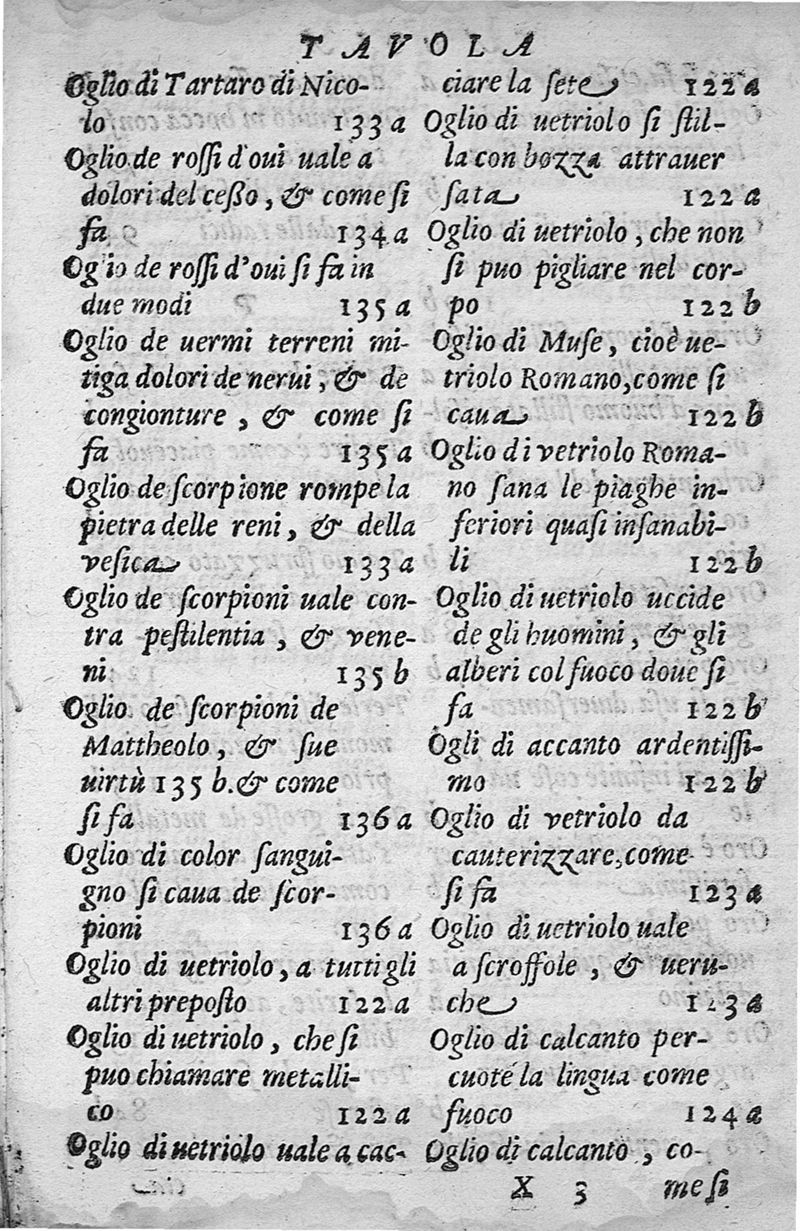 TAVOLA
Oglio di Tartaro di Nico-
lo 133 a
Oglio de rossi d'oui uale a
dolori del cesso, & come si
fa 134 a
Oglio de rossi d'oui si fa in
due modi 135 a
Oglio de uermi terreni mi-
tiga dolori de nerui, & de
congionture, & come si
fa 135 a
Oglio de scorpione rompe la
pietra delle reni, & della
vesica 133 a
Oglio de scorpioni uale con-
tra pestilentia, & vene-
ni 135 b
Oglio de scorpioni de
Mattheolo, & sue
uirtù 135 b. & come
si fa 136 a
Oglio di color sangui-
gno si caua de scor-
pioni 136 a
Oglio di uetriolo, a tutti gli
altri preposto 122 a
Oglio di uetriolo, che si
puo chiamare metalli-
co 122 a
Oglio di uetriolo uale a cac-
ciare la sete 122 a
Oglio di uetriolo si stil-
la con bozza attrauer
sata 122 a
Oglio di uetriolo, che non
si puo pigliare nel cor-
po 122 b
Oglio di Muse, cioè ue-
triolo Romano, come si
caua 122 b
Oglio di vetriolo Roma-
no sana le piaghe in-
feriori quasi insanabi-
li 122 b
Oglio di uetriolo uccide
de gli huomini, & gli
alberi col fuoco doue si
fa 122 b
Ogli di accanto ardentissi-
mo 122 b
Oglio di vetriolo da
cauterizzare, come
si fa 123 a
Oglio di uetriolo uale
a scroffole, & ueru-
che 123 a
Oglio di calcanto per-
cuote la lingua come
fuoco 124 a
Oglio di calcanto, co-
X 3 me si